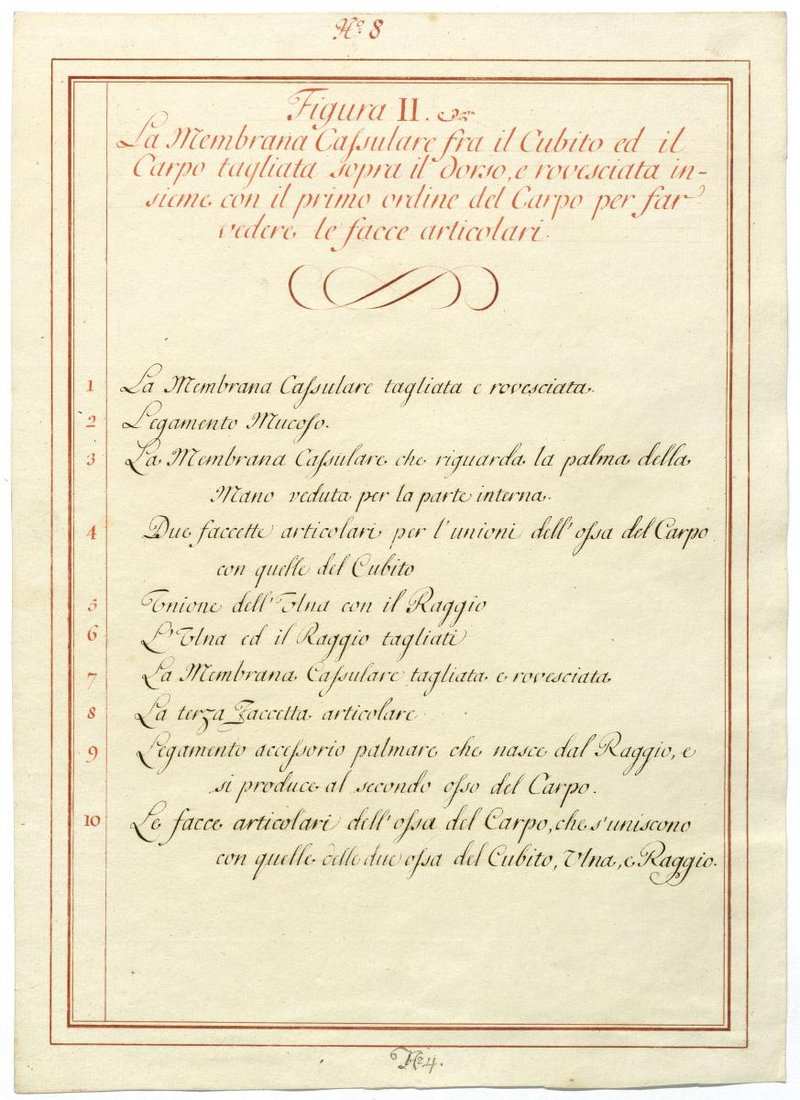 N.º 8
Figura II.
La Membrana Caſsulare fra il Cubito ed il
Carpo tagliata sopra il dorso, e rovesciata in-
sieme con il primo ordine del Carpo per far
vedere le facce articolari.
1 La Membrana Caſsulare tagliata e rovesciata.
2 Legamento Mucoſo.
3 La Membrana Caſsulare che riguarda la palma della
Mano veduta per la parte interna.
4 Due faccette articolari per l'unioni dell'oſsa del Carpo
con quelle del Cubito
5 Unione dell'Ulna con il Raggio
6 L'Ulna ed il Raggio tagliati
7 La Membrana Caſsulare tagliata e rovesciata
8 La terza Faccetta articolare
9 Legamento acceſsorio palmare che nasce dal Raggio, e
si produce al secondo oſso del Carpo.
10 Le facce articolari dell'oſsa del Carpo, che s'uniscono
con quelle delle due oſsa del Cubito, Ulna, e Raggio.
N.º 4.